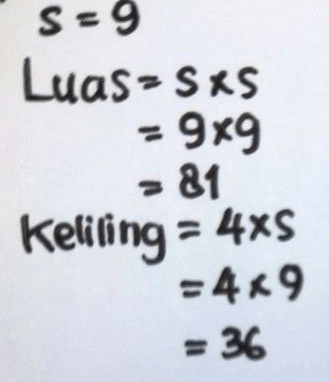 s = 9
Luas = s x s
= 9 x 9
= 81
Keliling = 4 x s
= 4 x 9
= 36